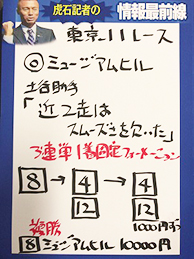 虎石記者の
情報最前線
東京11レース
◎ミュージアムヒル
土谷助手
「近2走は
スムーズさを欠いた」
3連単1着固定フォーメーション
8→4→4
12 12
1000円ずつ
複勝
8ミュージアムヒル10000円